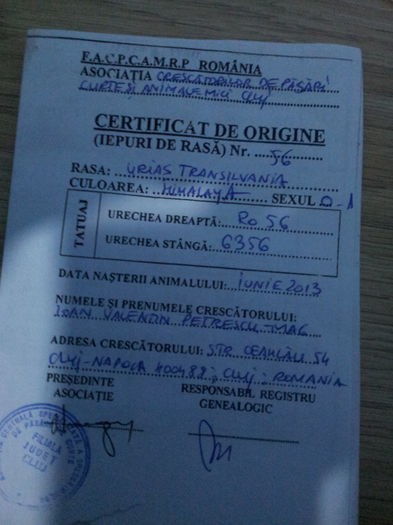 F.A.C.P.C.A.M.R.P ROMÂNIA
ASOCIAȚIA CRESCATORILOR DE PĂSĂRI
CURTE ȘI ANIMALE MICI CLUJ
CERTIFICAT DE ORIGINE
(IEPURI DE RASĂ) Nr. 56
RASA: URIAS TRANSILVANIA
CULOAREA: HIMALAYA SEXUL 0-1
TATUAJ
URECHEA DREAPTĂ: RO 56
URECHEA STÂNGĂ: 6356
DATA NAȘTERII ANIMALULUI: IUNIE 2013
NUMELE ȘI PRENUMELE CRESCĂTORULUI:
IOAN VALENTIN PETRESCU-MAG
ADRESA CRESCĂTORULUI: STR CEAHLĂU 54
CLUJ-NAPOCA 400488; CLUJ; ROMANIA
PREȘEDINTE RESPONSABIL REGISTRU
ASOCIAȚIE GENEALOGIC
FILIALA
JUDEȚ
CLUJ